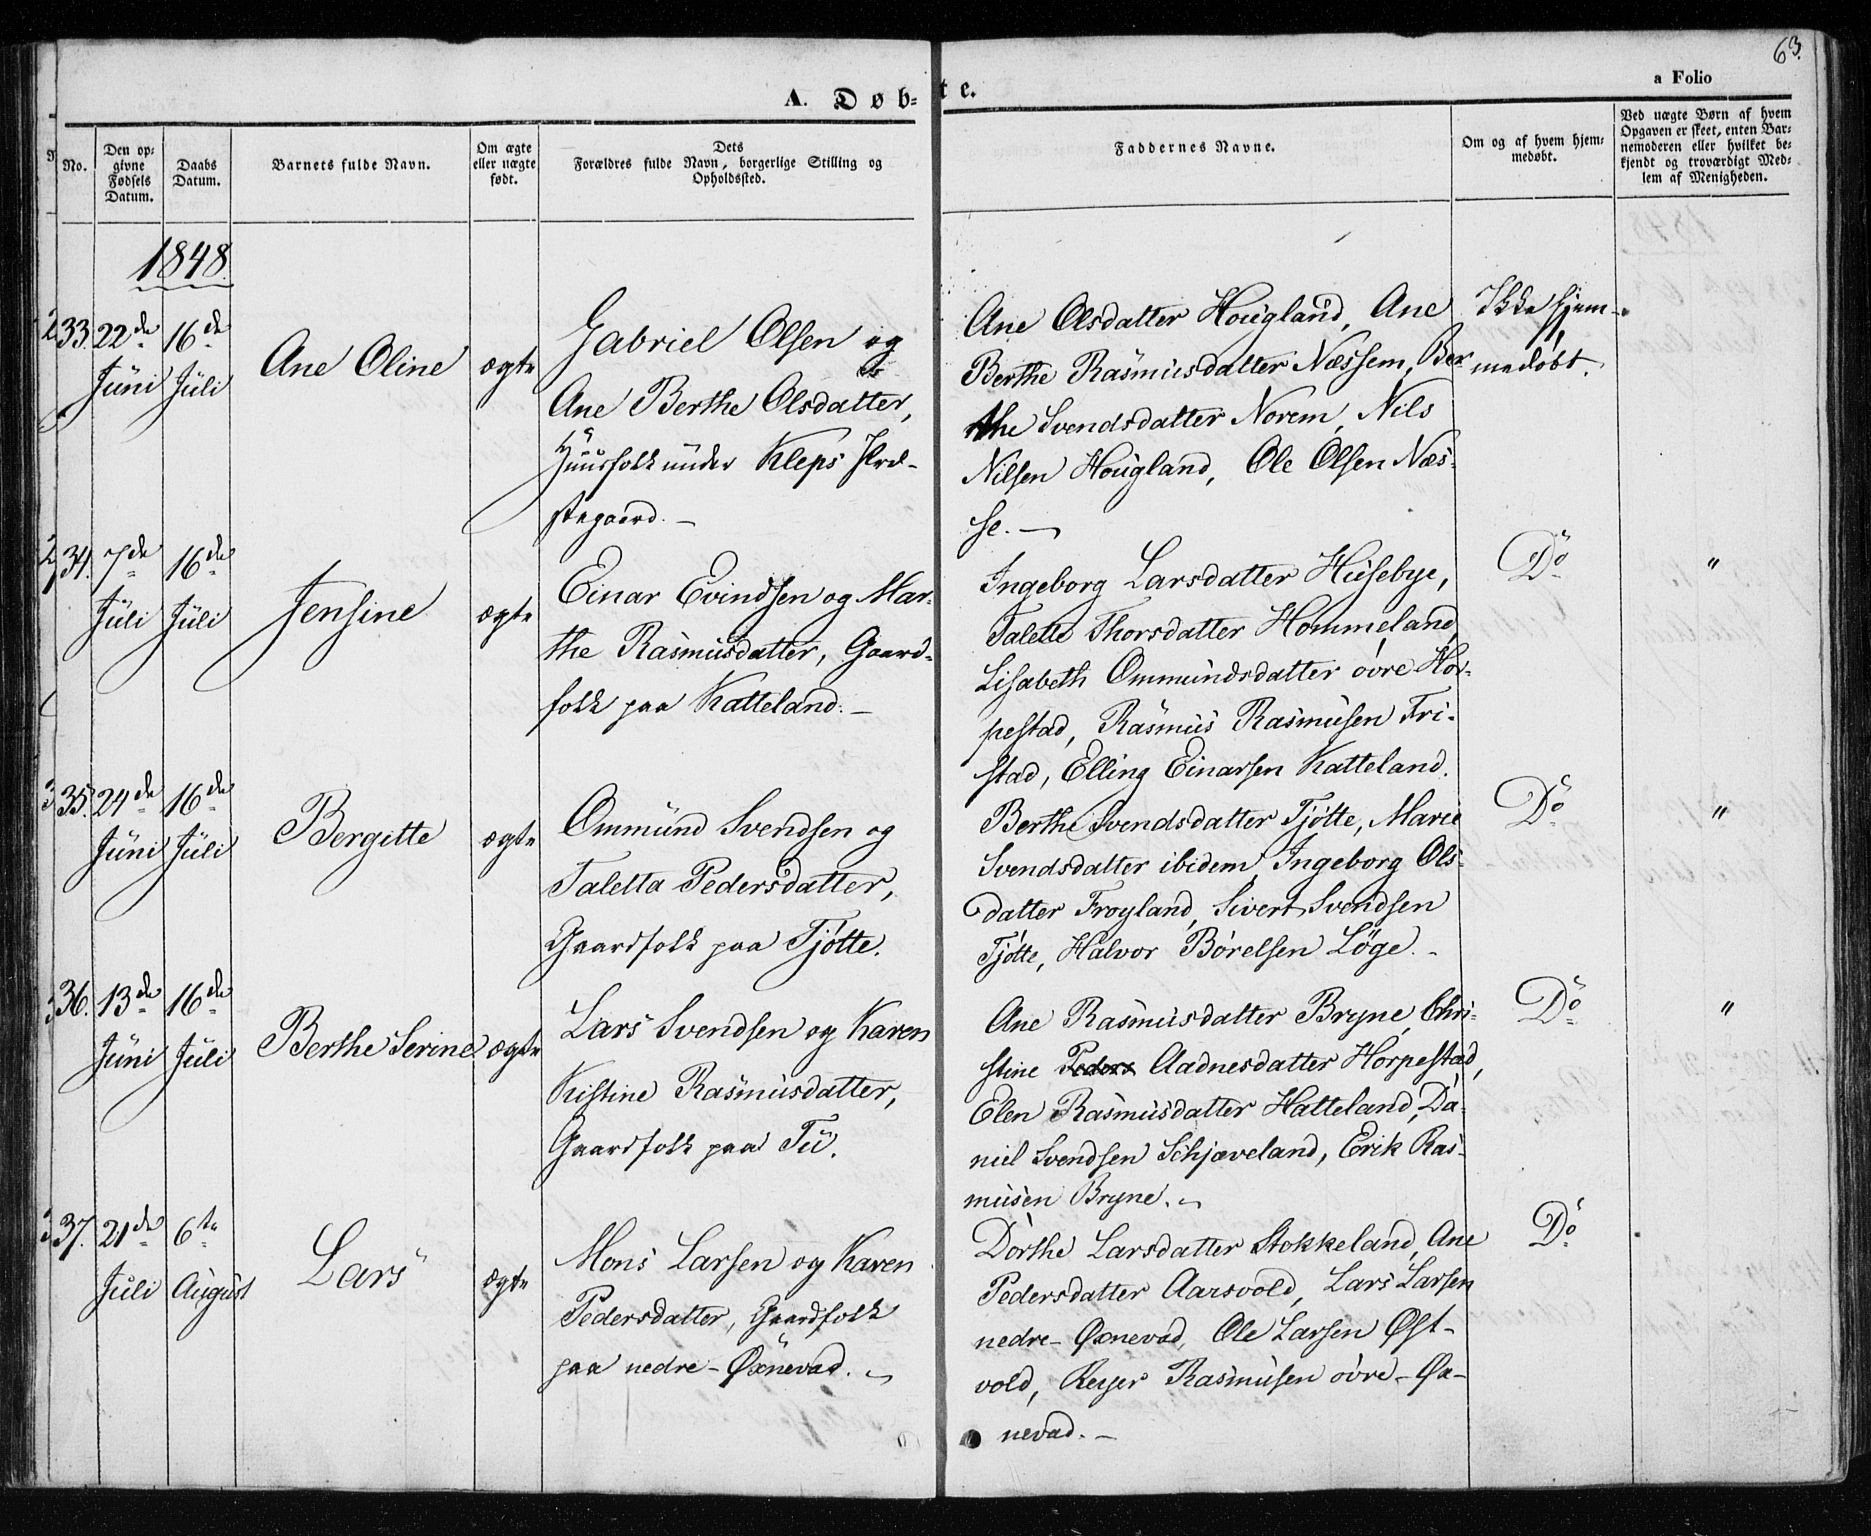 63.
A. Døb-te.
a Folio
No.
Den op-
givne
Fødsels
Datum.
Daabs
Datum.
Barnets fulde Navn.
Om ægte
eller uægte
født.
Dets
Forældres fulde Navn, borgerlige Stilling og
Opholdssted.
Faddernes Navne.
Om og af hvem hjem-
medøbt.
Ved uægte Børn af hvem
Opgaven er skeet, enten Bar-
nemoderen eller hvilket be-
kjendt og troværdigt Med-
lem af Menigheden.
1848.
33.
22de
Juni
16de
Juli
Ane Oline
ægte
Gabriel Olsen og
Ane Berthe Olsdatter,
Huusfolk under Kleps Præ-
stegaard. –
Ane Olsdatter Hougland, Ane
Berthe Rasmusdatter Næssem, Ber
the Svendsdatter Norem, Nils
Nilsen Hougland, Ole Olsen Næs-
se. –
Ikke hjem-
medøbt.
34.
7de
Juli
16de
Juli
Jensine
ægte
Einar Evindsen og Mar-
the Rasmusdatter, Gaard-
folk paa Katteland. –
Ingeborg Larsdatter Husebye,
Talette Thorsdatter Hommeland,
Lisabeth Ommundsdatter øvre Hor-
pestad, Rasmus Rasmusen Fri-
stad, Elling Einarsen Katteland.
Do
"
35.
24de
Juni
16de
Juli
Bergitte
ægte
Ommund Svendsen og
Taletta Pedersdatter,
Gaardfolk paa Tjøtte.
Berthe Svendsdatter Tjøtte, Marie
Svendsdatter ibidem, Ingeborg Ols-
datter Frøyland, Sivert Svendsen
Tjøtte, Halvor Børelsen Løge. –
Do
"
36.
13de
Juni
16de
Juli
Berthe Serine
ægte
Lars Svendsen og Karen
Kistine Rasmusdatter,
Gaardfolk paa Tu.
Ane Rasmusdatter Bryne, Chri-
stine Peders Aadnesdatter Horpestad,
Elen Rasmusdatter Hatteland, Da-
niel Svendsen Schjæveland, Erik Ras-
musen Bryne. –
Do
"
37.
21de
Juli
6te
August
Lars
ægte
Mons Larsen og Karen
Pedersdatter, Gaardfolk
paa nedre-Øxnevad. –
Dorthe Larsdatter Stokkeland, Ane
Pedersdatter Aarsvold, Lars Larsen
nedre-Øxnevad, Ole Larsen Øst-
vold, Reyer Rasmusen øvre-Øx-
nevad. –
Do